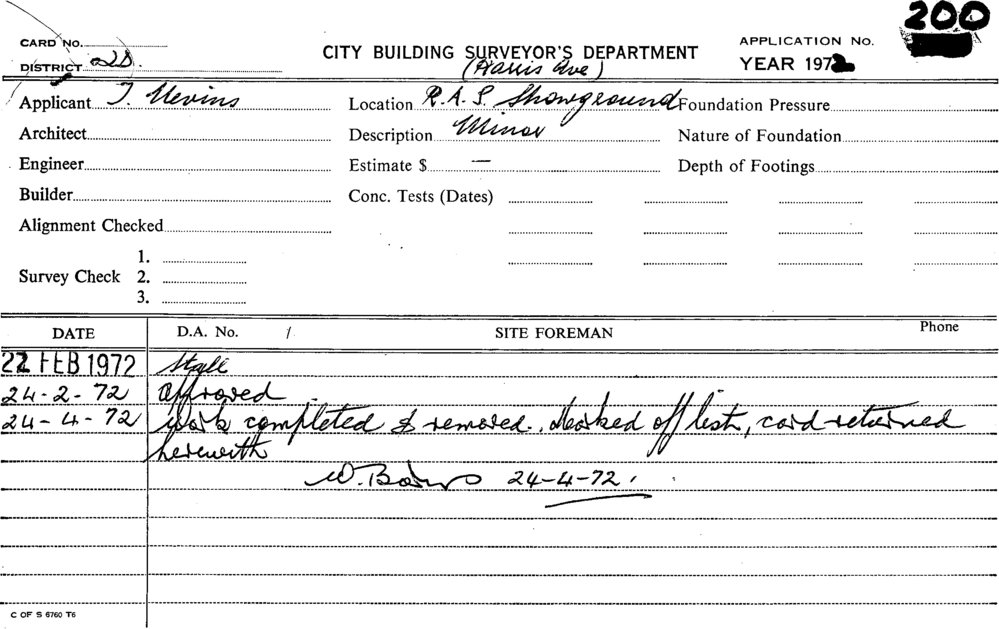 200
CARD No.
CITY BUILDING SURVEYOR'S DEPARTMENT
APPLICATION No.
DISTRICT 2D.
(Harris Ave)
YEAR 1972
Applicant T. Nevins
Location R.A.S. Showground
Foundation Pressure
Architect
Description Minor
Nature of Foundation
Engineer
Estimate $ —
Depth of Footings
Builder
Conc. Tests (Dates)
Alignment Checked
1.
Survey Check 2.
3.
DATE D.A. No. / SITE FOREMAN Phone
22 FEB 1972 Stall
24-2-72 Approved
24-4-72 Work completed & removed. Marked off list, card returned
herewith
W. 24-4-72.
C OF S 6760 T6